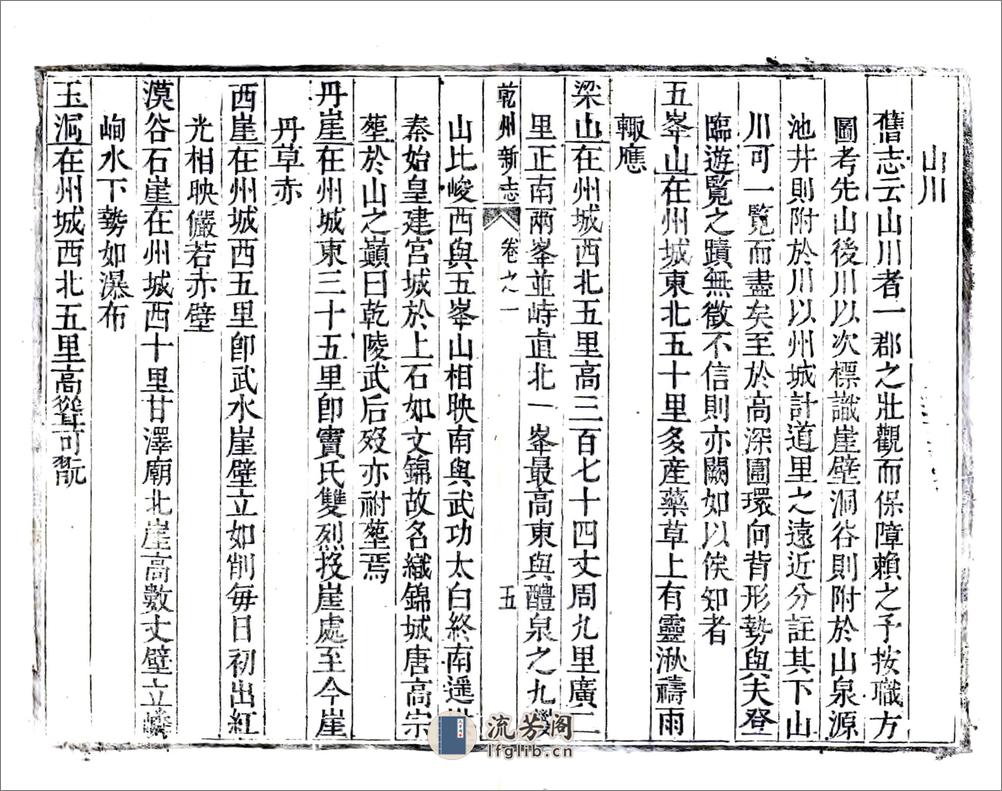 山川
舊志云山川者一郡之壯觀而保障賴之予按職方
圖考先山後川以次標識崖壁洞谷則附於山泉源
池井則附於川以州城計道里之遠近分註其下山
川可一覽而盡矣至於高深圍環向背形勢與夫登
臨遊覽之蹟無徵不信則亦闕如以俟知者
五峯山在州城東北五十里多産藥草上有靈湫禱雨
輙應
梁山在州城西北五里高三百七十四丈周九里廣二
里正南兩峯並峙直北一峯最高東與醴泉之九嵕
乾州新志 卷之一 五
山比峻西與五峯山相映南與武功太白終南遥
秦始皇建宫城於上石如文錦故名織錦城唐高宗
塟於山之巔曰乾陵武后歿亦祔塟焉
丹崖在州城東三十五里卽竇氏雙烈投崖處至今崖
丹草赤
西崖在州城西五里卽武水崖壁立如削每日初出紅
光相映儼若赤壁
漠谷石崖在州城西十里甘澤廟北崖高數丈壁立嶙
峋水下勢如瀑布
玉洞在州城西北五里高聳可翫
流芳阁
lfglib.cn